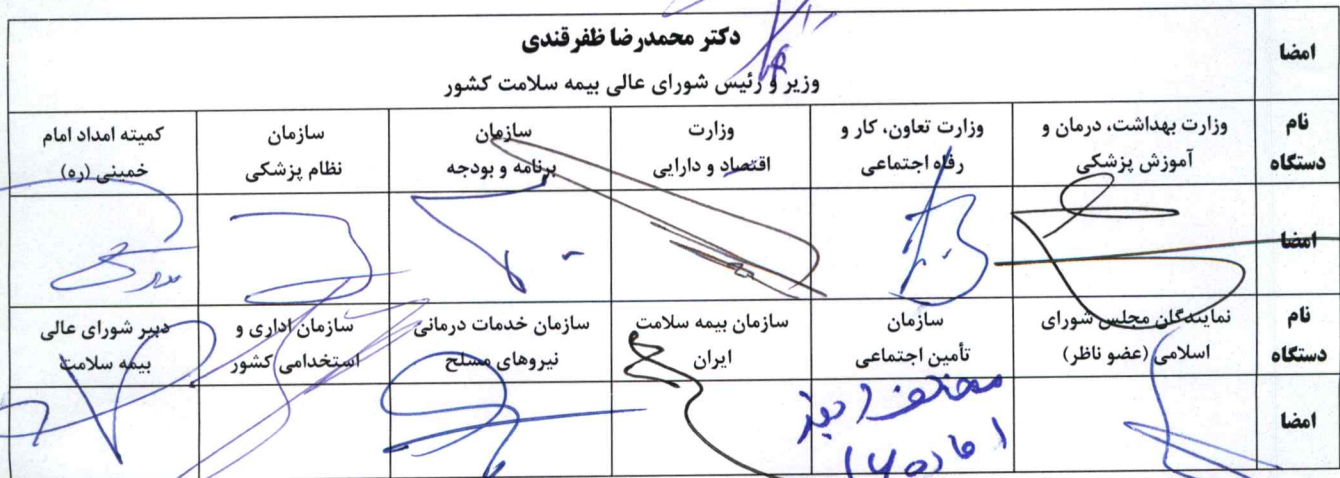 امضا
دکتر محمدرضا ظفرقندی
وزیر و رئیس شورای عالی بیمه سلامت کشور
نام دستگاه
وزارت بهداشت، درمان و
آموزش پزشکی
وزارت تعاون، کار و
رفاه اجتماعی
وزارت
اقتصاد و دارایی
سازمان
برنامه و بودجه
سازمان
نظام پزشکی
کمیته امداد امام
خمینی (ره)
امضا
نام دستگاه
نمایندگان مجلس شورای
اسلامی (عضو ناظر)
سازمان
تأمین اجتماعی
سازمان بیمه سلامت
ایران
سازمان خدمات درمانی
نیروهای مسلح
سازمان اداری و
استخدامی کشور
دبیر شورای عالی
بیمه سلامت
امضا